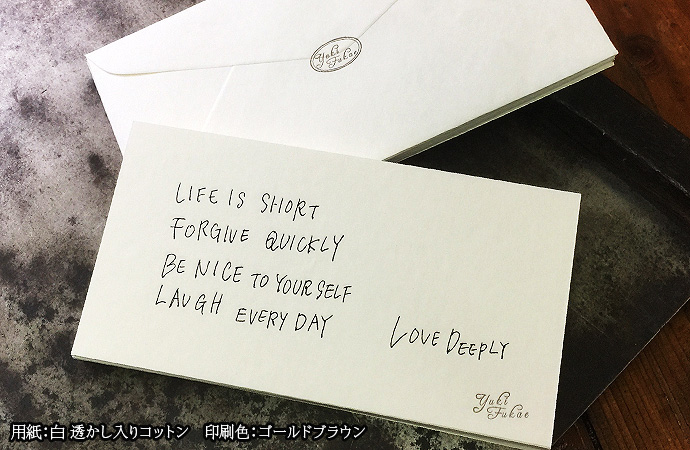 Yuki
Fukae
LIFE IS SHORT
FORGIVE QUICKLY
BE NICE TO YOURSELF
LAUGH EVERY DAY
LOVE DEEPLY
Yuki
Fukae
用紙:白 透かし入りコットン 印刷色:ゴールドブラウン